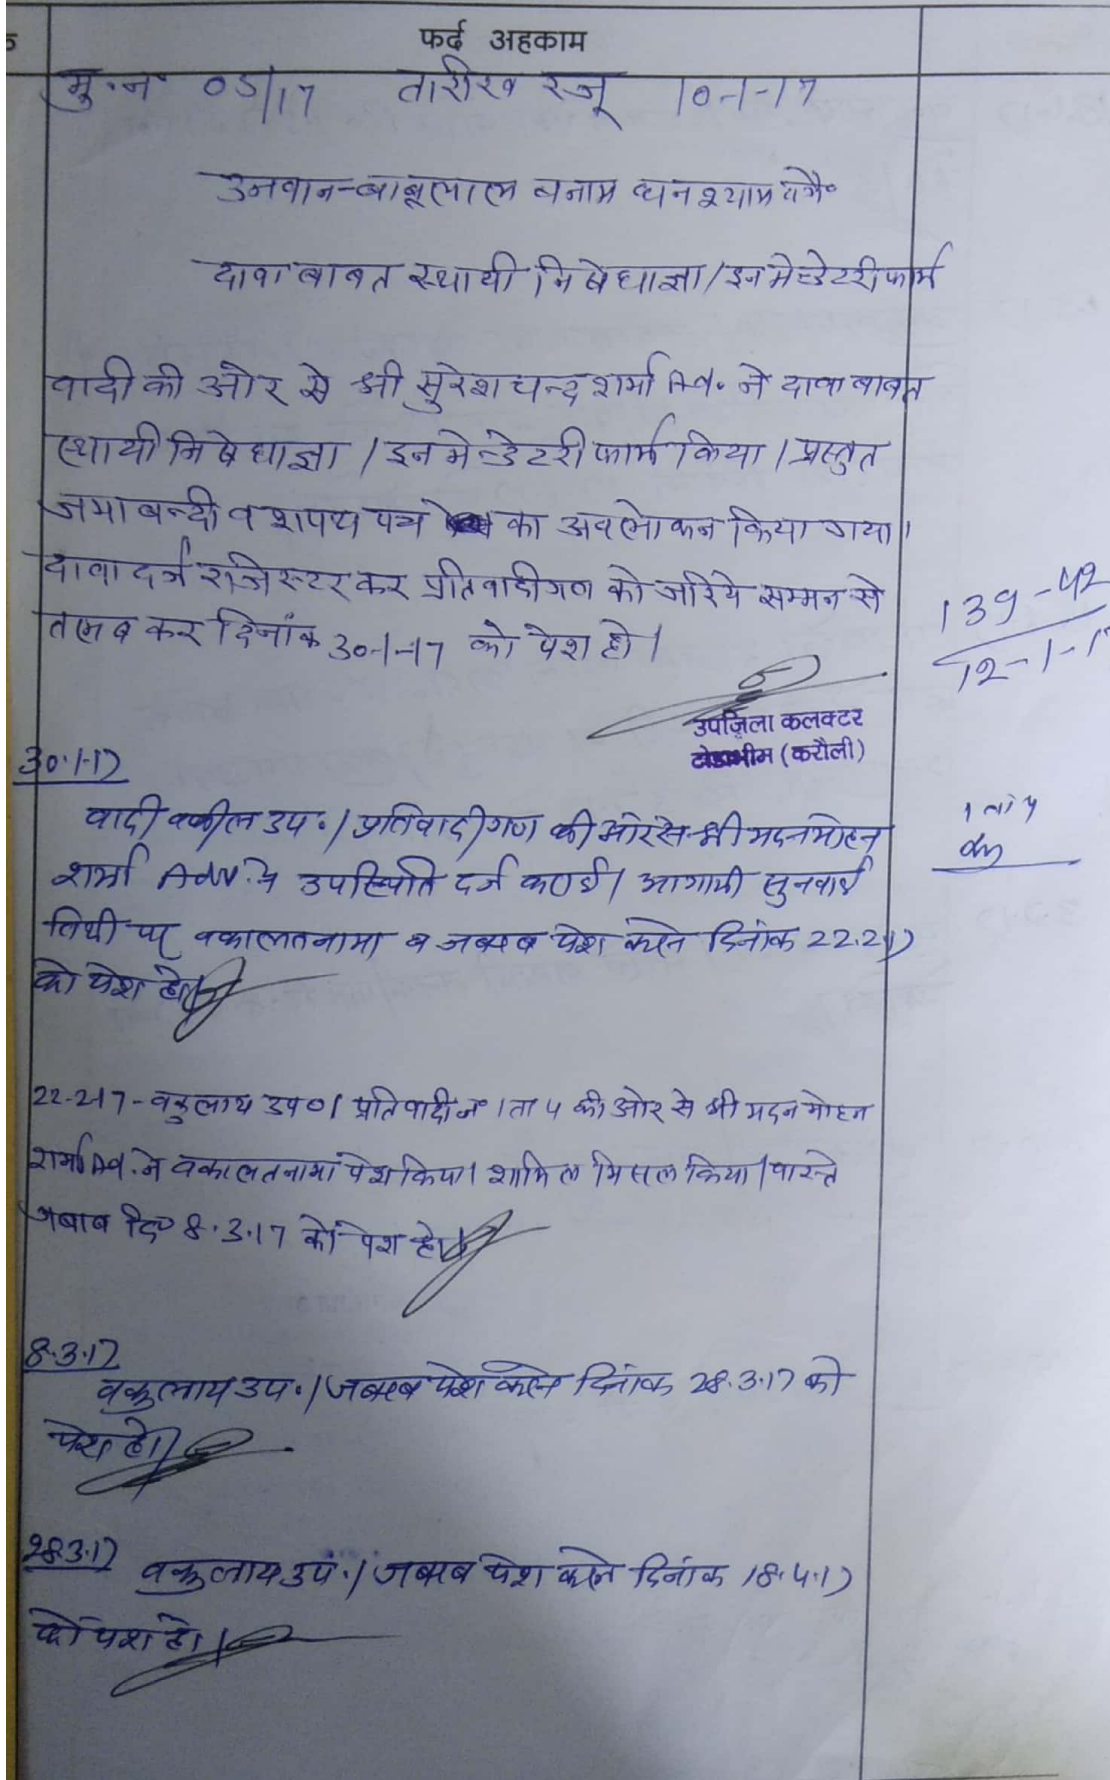 फर्द अहकाम
मु.नं 05/17 तारीख रजू 10-1-17
उनवान-बाबूलाल बनाम घनश्याम वगै०
दावा बाबत स्थायी निषेधाज्ञा/इनमेन्डेटरी फार्म
वादी की ओर से श्री सुरेशचन्द शर्मा Ad. ने दावा बाबत
स्थायी निषेधाज्ञा / इनमेन्डेटरी फार्म किया / प्रस्तुत
जमाबन्दी व शपथ पत्र का अवलोकन किया गया।
दावा दर्ज रजिस्टर कर प्रतिवादीगण को जरिये सम्मन से
तलब कर दिनांक 30-1-17 को पेश हो।
139-42
12-1-1
उपजिला कलक्टर
टोडाभीम (करौली)
30.1.17
वादी वकील उप./प्रतिवादीगण की ओर से श्री मदनमोहन
1 ता 4
शर्मा Adv. ने उपस्थिति दर्ज कराई। आगामी सुनवाई
तिथी पर वकालतनामा व जबाब पेश करने दिनांक 22.2.17
को पेश हो।
22-2-17-वकुलाय उप०। प्रतिवादी नं 1 ता 4 की ओर से श्री मदन मोहन
शर्मा Ad. ने वकालतनामां पेश किया। शामिल मिसल किया। वास्ते
जबाब दि० 8.3.17 को पेश हो।
8.3.17
वकुलाय उप./जबाब पेश करने दिनांक 28.3.17 को
पेश हो।
28.3.17 वकुलाय उप./जबाब पेश करने दिनांक 18.4.17
को पेश हो।